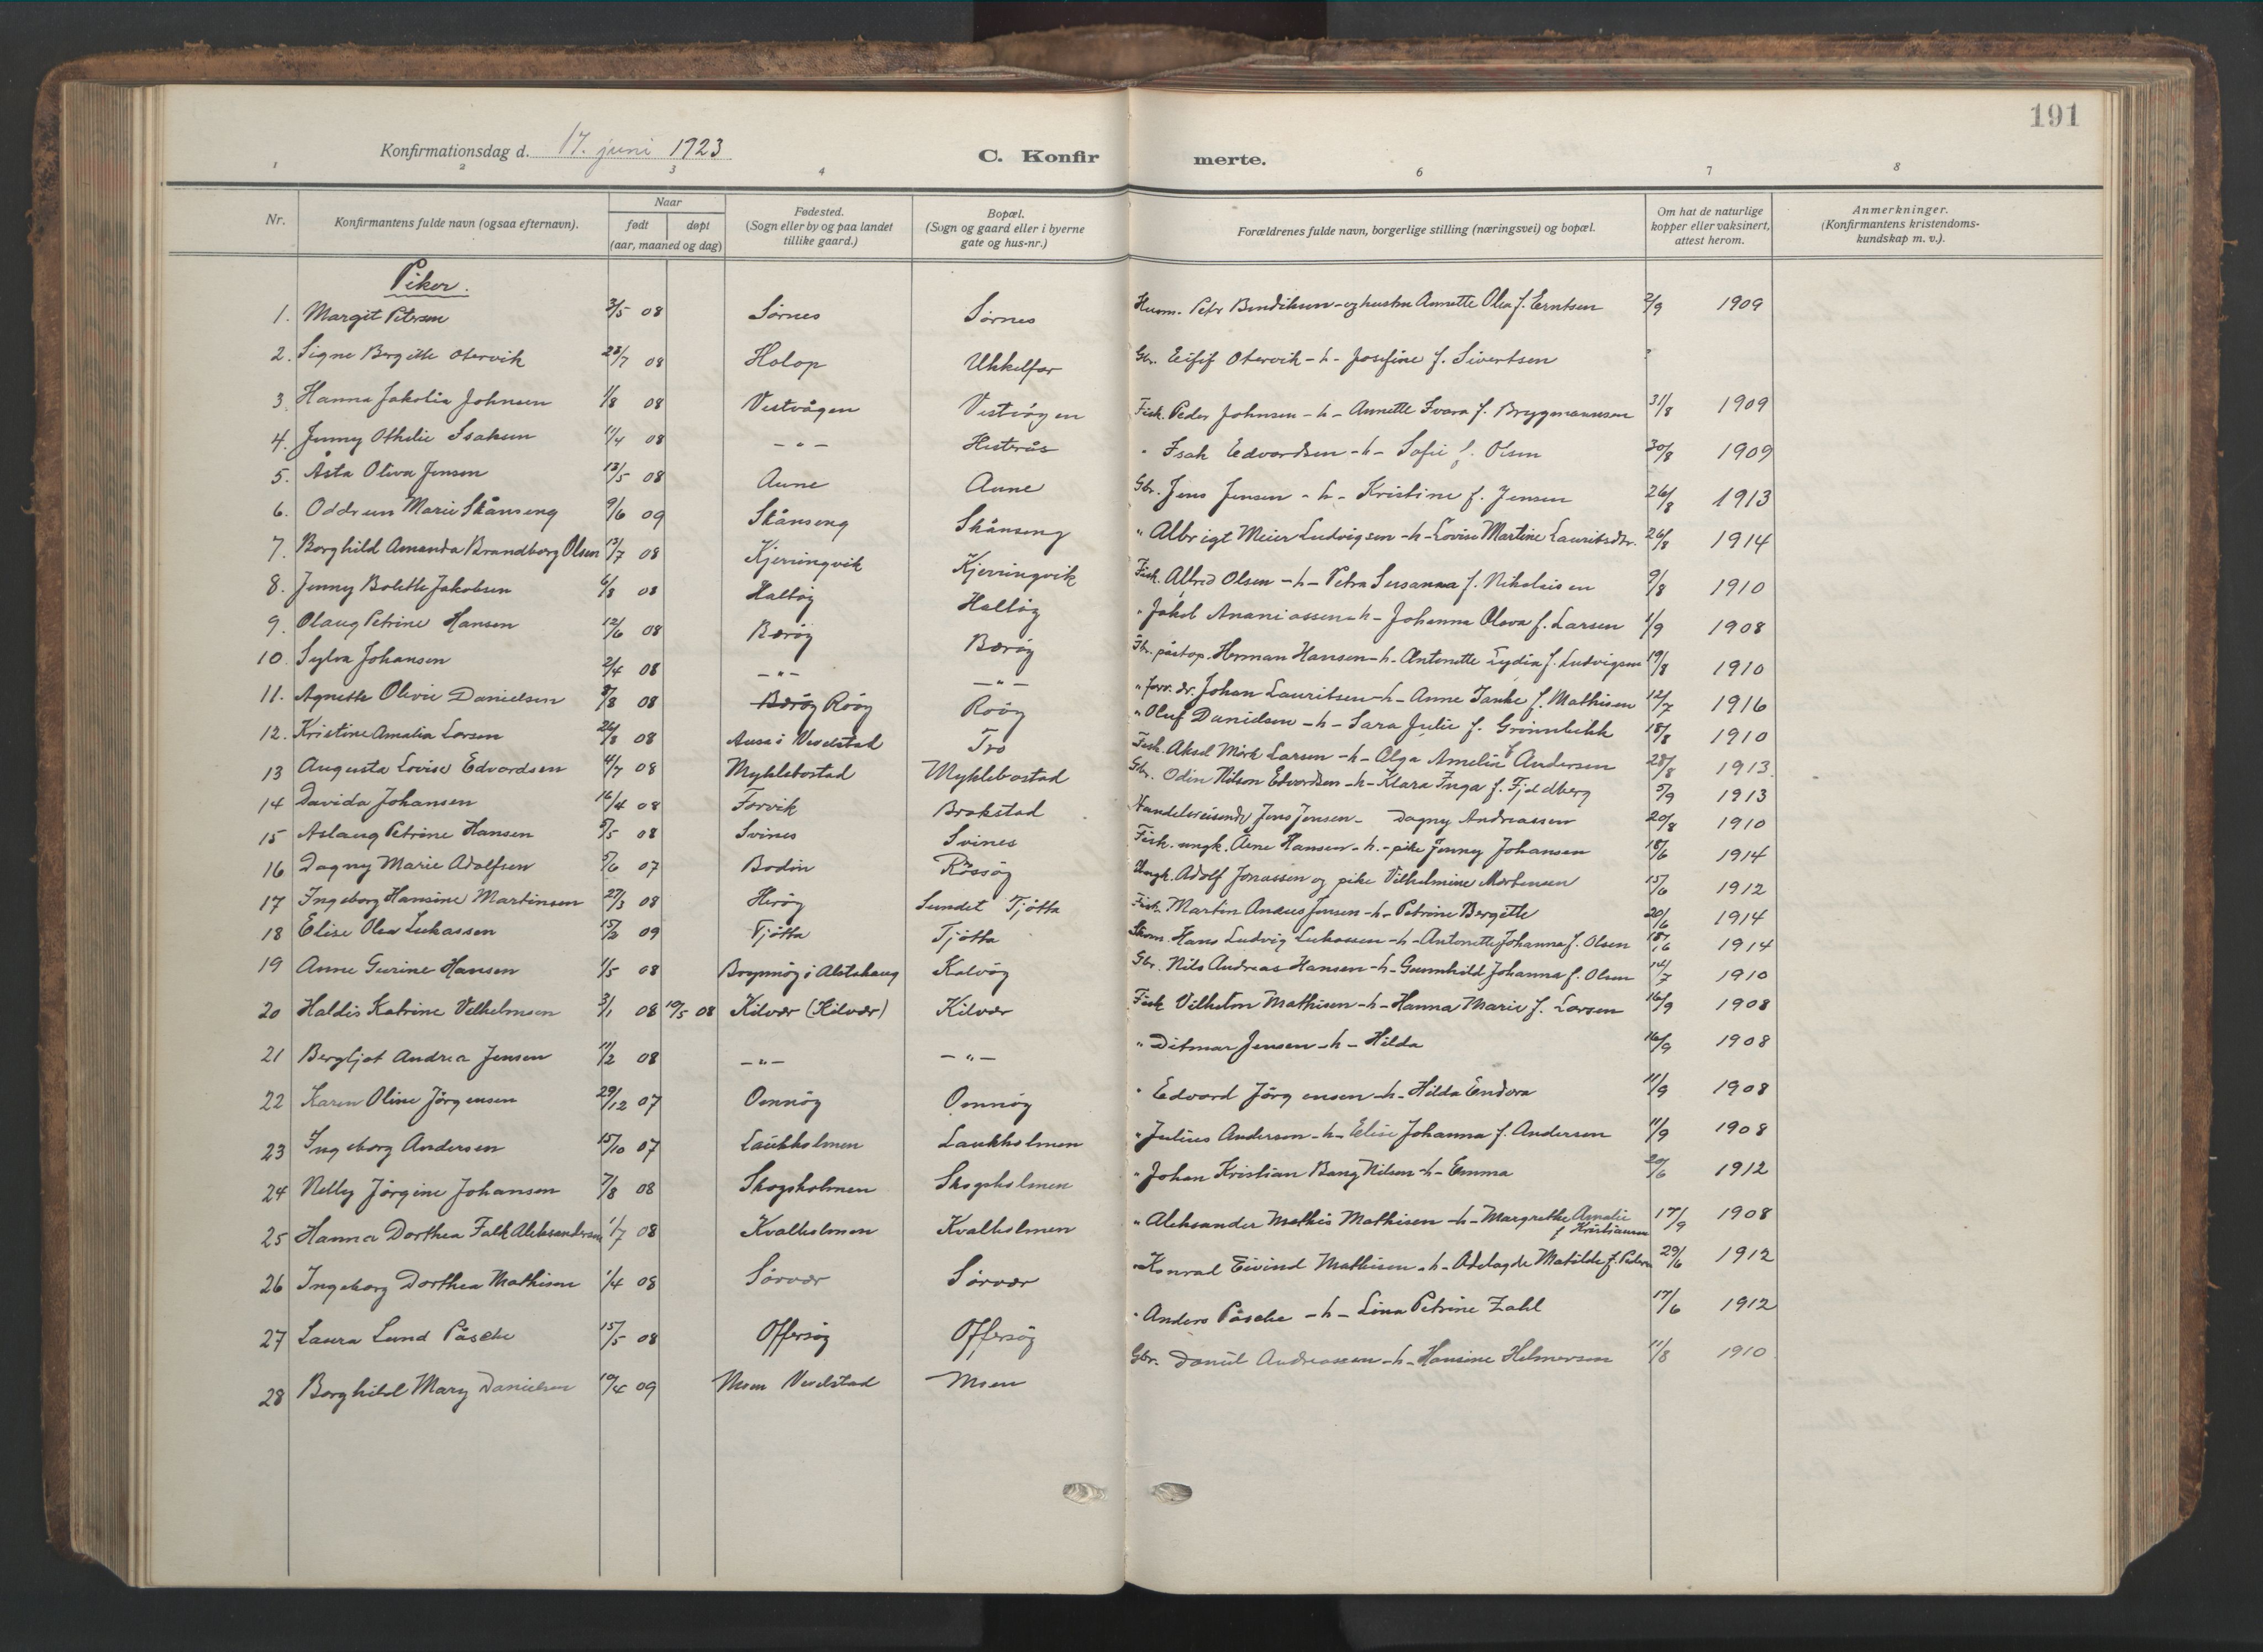 191
Konfirmationsdag d. 17. juni 1923
C. Konfir merte.
1 2 3 4 6 7 8
Nr.
Konfirmantens fulde navn (ogsaa efternavn).
Naar
født døpt
(aar, maaned og dag)
Fødested.
(Sogn eller by og paa landet
tillike gaard.)
Bopæl.
(Sogn og gaard eller i byerne
gate og hus-nr.)
Forældrenes fulde navn, borgerlige stilling (næringsvei) og bopæl.
Om hat de naturlige
kopper eller vaksinert,
attest herom.
Anmerkninger.
(Konfirmantens kristendoms-
kundskap m. v.).
Piker.
1. Margit Petersen 3/5 08 Sørnes Sørnes Husm. Petr Bendiksen og hustru Annette Olea f. Erntsen 2/9 1909
2. Signe Bergitte Otervik 28/7 08 Holop Ukkelfar Gbr. Otervik - h - Josefine f. Sivertsen ?
3. Hanna Jakolia Johnsen 1/8 08 Vestvågen Vestvågen Fisk. Peder Johnsen - h - Annette Ivara f. Brygmannsen 31/8 1909
4. Jenny Othelie Isaksen 11/4 08 - " - Husterås " Isak Edvardsen - h - Sofie f. Olsen 30/8 1909
5. Åsta Oliva Jensen 13/5 08 Aune Aune Gbr. Jens Jensen - h - Kristine f. Jensen 26/8 1913
6. Oddrun Marie Skånseng 9/6 09 Skånseng Skånseng " Albrigt Meier Ludvigsen - h - Lovise Martine Lauritsdtr. 26/8 1914
7. Borghild Amanda Brandborg Olsen 13/7 08 Kjerringvik Kjerringvik Fisk. Alfred Olsen - h - Petra Susanna f. Nikolaisen 9/8 1910
8. Jenny Bolette Jakobsen 6/8 08 Haltøy Haltøy " Jakob Ananiassen - h - Johanna Olava f. Larsen 1/9 1908
9. Olaug Petrine Hansen 12/6 08 Bærøy Bærøy Gbr. påstop. Herman Hansen - h - Antonette Lydia f. Ludvigsen 19/8 1910
10. Sylva Johansen 2/4 08 - " - - " - " forr. dr. Johan Lauritsen - h - Anne Tanke f. Mathisen 12/7 1916
11. Agnethe Olivie Danielsen 8/8 08 Bærøy Røøy Røøy " Oluf Danielsen - h - Sara Julie f. Grønnbekk 18/8 1910
12. Kristine Amalia Larsen 26/8 08 Ausa i Vevelstad Tro Fisk. Aksel Mørk Larsen - h - Olga Amelie f Andersen 28/8 1913
13 Augusta Lovise Edvardsen 4/7 08 Myklebostad Myklebostad Gbr. Odin Nilson Edvardsen - h - Klara Inga f. Fjeldberg 5/9 1913
14 Davida Johansen 16/4 08 Forvik Brakstad Handelsreisende Jens Jensen - Dagny Andreassen 20/8 1910
15 Aslaug Petrine Hansen 5/5 08 Svines Svines Fisk. ungk. Arne Hansen - h. - pike Jenny Johansen 18/6 1914
16 Dagny Marie Adolfsen 5/6 07 Bodin Røssøy Ungk. Adolf Jonassen og pike Vilhelmine Mortensen 15/6 1912
17 Ingeborg Hansine Martinsen 27/3 08 Herøy Sundet Tjøtta Fisk. Martin Andeus Jensen - h - Petrine Bergitte 20/6 1914
18 Elise Olea Lukassen 15/2 09 Tjøtta Tjøtta Skom. Hans Ludvig Lukassen - h - Antonette Johanna f. Olsen 18/6 1914
19 Anne Gurine Hansen 1/5 08 i Alstahaug Kalvøy Gbr. Nils Andreas Hansen - h - Gunnhild Johanna f. Olsen 14/7 1910
20 Haldis Katrine Vilhelmsen 3/1 08 10/5 08 Kilvær (Kilvær) Kilvær Fisk Vilhelm Mathisen - h - Hanna Marie f. Larsen 16/9 1908
21 Bergljot Andrea Jensen 11/2 08 - " - - " - " Ditmar Jensen - h - Hilda 16/9 1908
22 Karen Oline Jörgensen 29/12 07 Omnøy Omnøy " Edvard Jörgensen - h - Hilda Endora 11/9 1908
23 Ingeborg Andersen 15/10 07 Laukholmen Laukholmen " Julius Andersen - h - Elise Johanna f. Andersen 11/9 1908
24 Nelly Jörgine Johansen 7/8 08 Skogsholmen Skogsholmen " Johan Kristian Bang Nilsen - h - Emma 20/6 1912
25 Hanna Dorthea Falk Aleksandersen 1/7 08 Kvalholmen Kvalholmen " Aleksander Mathis Mathisen - h - Margrethe Amalie f Kristiansen 17/9 1908
26 Ingeborg Dorthea Mathisen 1/4 08 Sørvær Sørvær " Konrad Eivind Mathisen - h - Adelagde Matilde f. Peders 29/6 1912
27 Laura Lund Påsche 15/5 08 Offersøy Offersøy " Anders Påsche - h - Lina Petrine Zahl 17/6 1912
28 Borghild Mary Danielsen 10/4 09 Moen Vevelstad Moen Gbr. Daniel Andreassen - h - Hansine Helmersen 11/8 1910